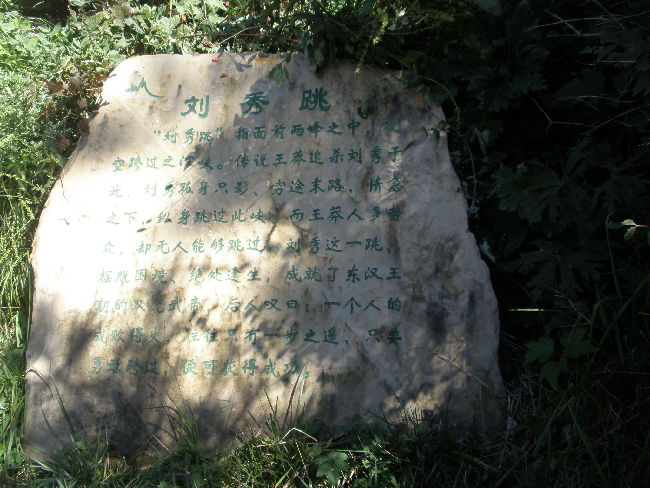 刘秀跳
“刘秀跳”指面前两峰之中,
空跨过之深峡。传说王莽追杀刘秀于
此,刘秀孤身只影、穷途末路,情急
之下,纵身跳过此峡,而王莽人多势
众,却无人能够跳过。刘秀这一跳,
摆脱困境、绝处逢生,成就了东汉王
朝的汉光武帝,后人叹曰:一个人的
成败得失,往往只有一步之遥,只要
勇敢跨过,便可获得成功。